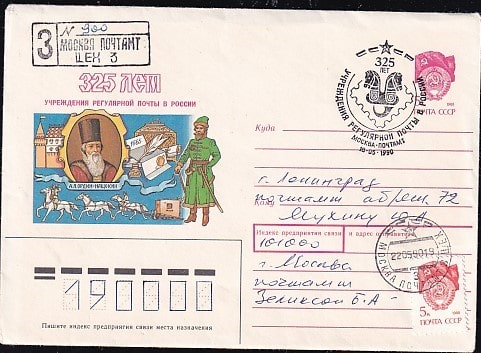 З
N 900
МОСКВА ПОЧТАМТ
ЦЕХ 3
325 ЛЕТ
УЧРЕЖДЕНИЯ РЕГУЛЯРНОЙ ПОЧТЫ В РОССИИ
1665
А.Л.ОРДИН-НАЩОКИН
325
ЛЕТ
УЧРЕЖДЕНИЯ РЕГУЛЯРНОЙ ПОЧТЫ В РОССИИ
МОСКВА-ПОЧТАМТ
18-05-1990
ПОЧТА СССР
Куда
г. Ленинград
почтамт аб. ящ. 72
Кому
Мухину Ю.А
Индекс предприятия связи и адрес отправителя
101000
г. Москва
почтамт
Зеликсон Б.А-
МОСКВА ПОЧТАМТ
190000
Пишите индекс предприятия связи места назначения
5к
ПОЧТА СССР